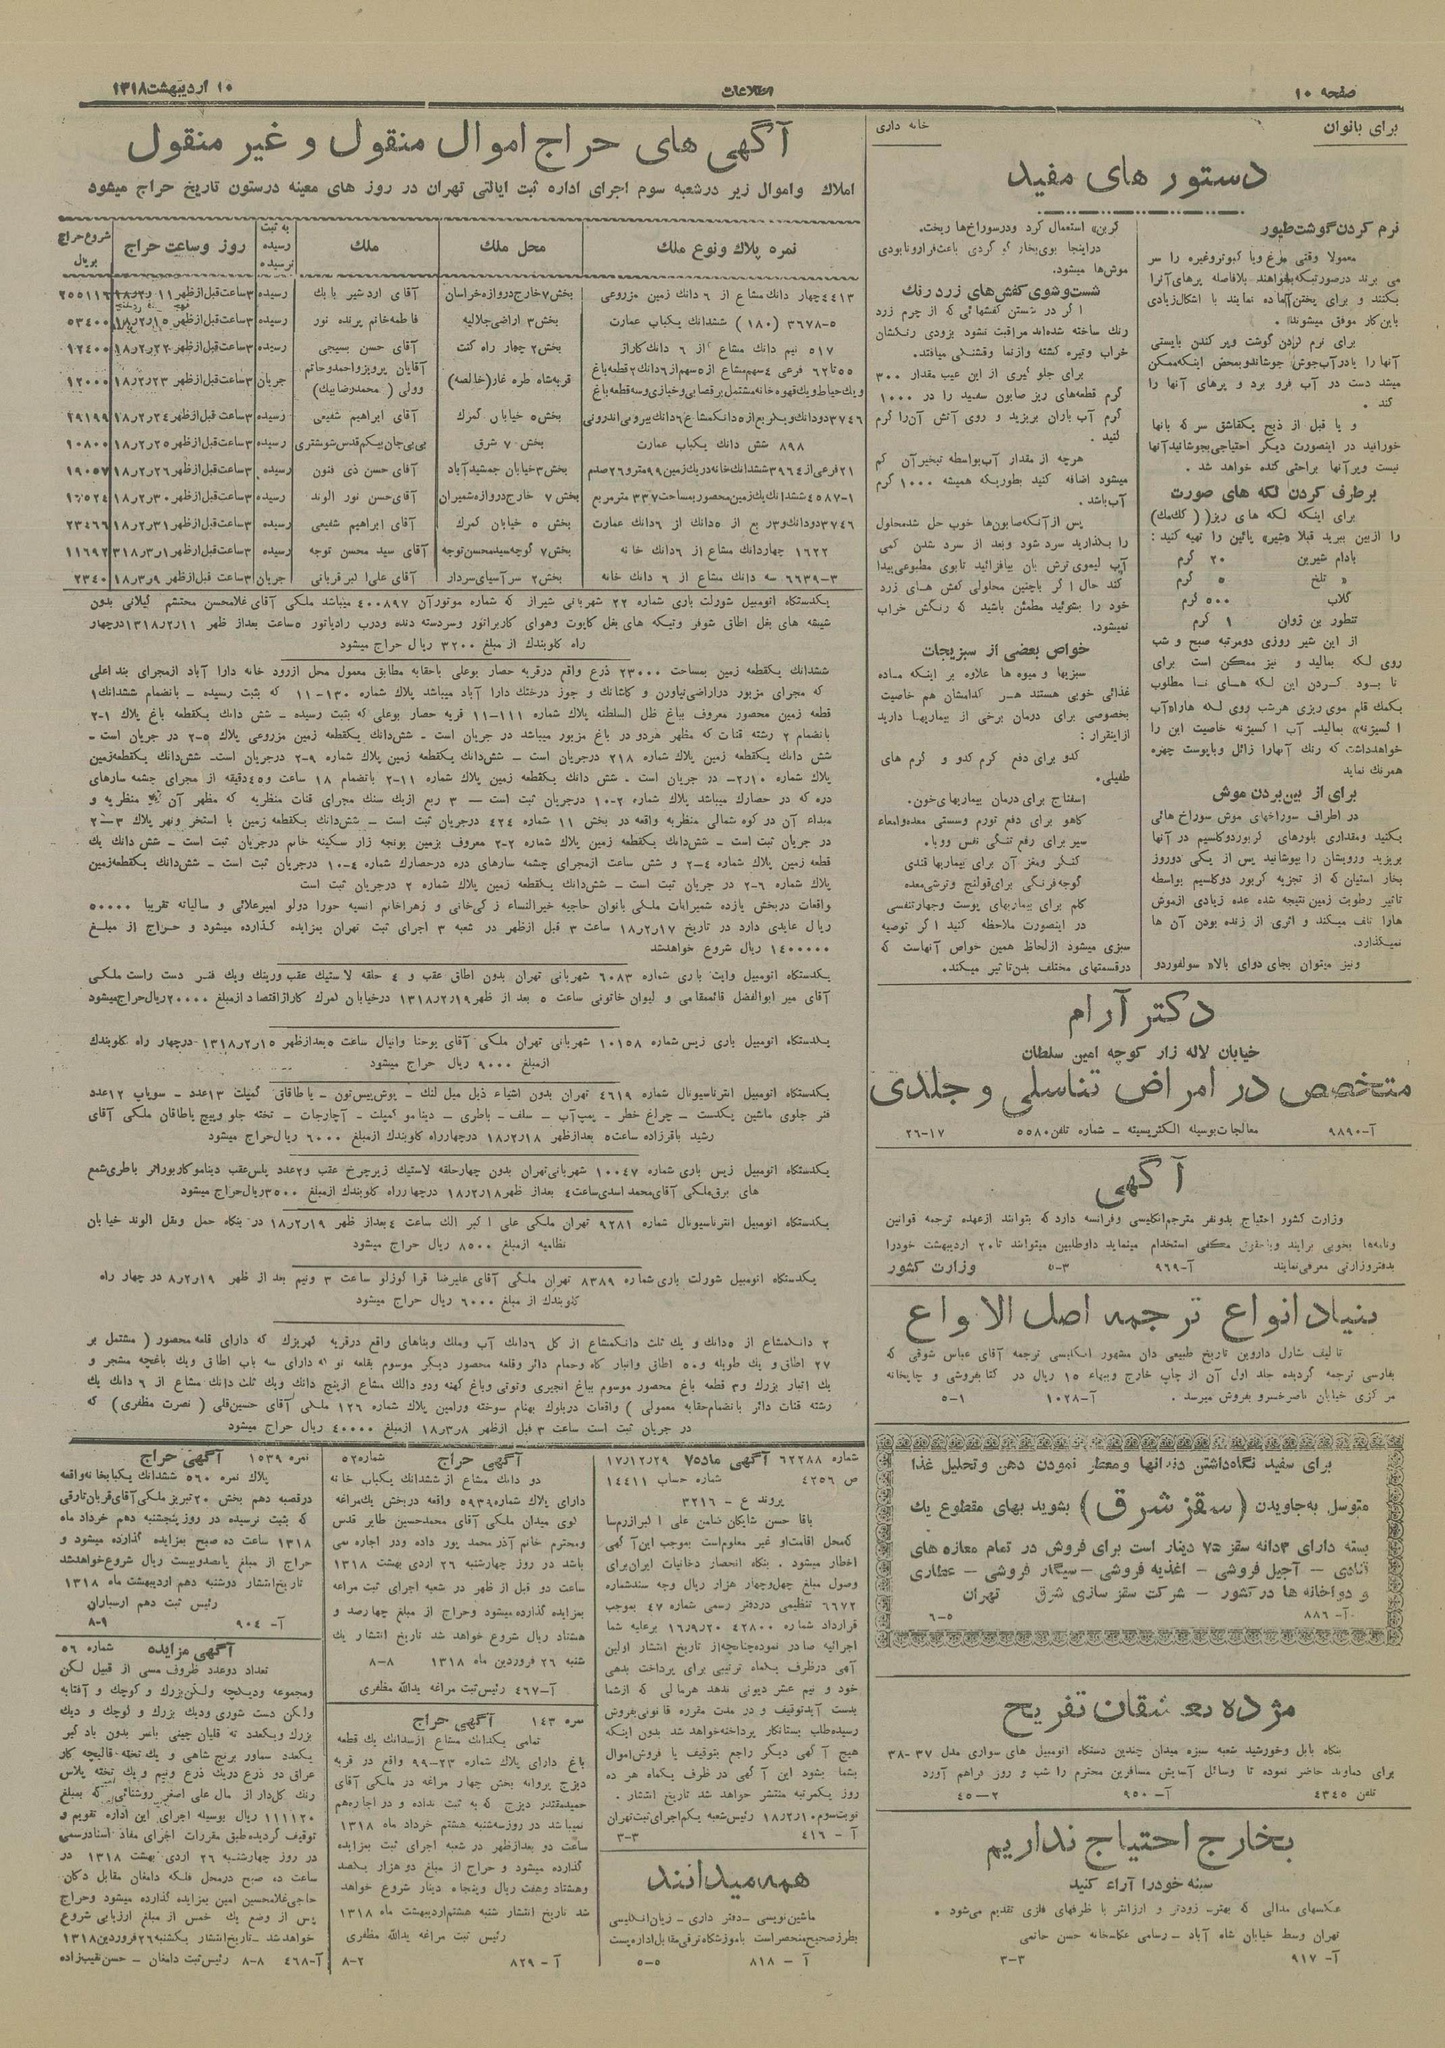 صفحه ۱۰
اطلاعات
۱۰ اردیبهشت ۱۳۱۸
برای بانوان
خانه داری
دستور های مفید
نرم کردن گوشت طیور
معمولا وقتی مرغ ویا کبوتر وغیره را سر
می برند درصورتیکه بخواهند بلافاصله پرهای آنرا
بکنند و برای پختن آماده نمایند با اشکال زیادی
باین کار موفق میشوند
برای نرم کردن گوشت وپر کندن بایستی
کند .
و یا قبل از ذبح یکقاشق سرکه بانها
خورانید در اینصورت دیگر احتیاجی بجوشانید آنها
نیست وپر آنها براحتی کنده خواهد شد .
برطرف کردن لکه های صورت
برای اینکه لکه های ریز ( کک مک )
را ازبین ببرید قبلا «شیر» پائین را تهیه کنید :
بادام شیرین ۲۰ گرم
« تلخ ۵ گرم
گلاب ۵۰۰ گرم
تنطور بن ژوان ۱ گرم
از این شیر روزی دومرتبه صبح و شب
روی لکه بمالید و نیز ممکن است برای
نا بود کردن این لکه های نا مطلوب
بکمک قلم موی ریزی هرشب روی لکه هارا «آب
اکسیژنه» بمالید. آب اکسیژنه خاصیت این را
خواهد داشت که رنک آنهارا زائل وباپوست چهره
همرنک نماید
برای از بین بردن موش
در اطراف سوراخهای موش سوراخ هائی
بکنید ومقداری بلورهای کربوردوکلسیم در آنها
بریزید ورویشان را بپوشانید پس از یکی دوروز
بخار استیلن که از تجزیه کربور دوکلسیم بواسطه
تاثیر رطوبت زمین نتیجه شده عده زیادی ازموش
هارا تلف میکند و اثری از زنده بودن آن ها
نمیگذارد.
ونیز میتوان بجای دوای بالا« سولفوردو
کربن» استعمال کرد ودرسوراخ ها ریخت.
دراینجا بوی بخار گو گردی باعث فرار ونابودی
موش ها میشود.
شست وشوی کفش های زرد رنک
اگر در شستن کفشهائی که از چرم زرد
رنک ساخته شده اند مراقبت نشود بزودی رنکشان
خراب وتیره گشته وازنما وقشنگی میافتد.
برای جلو گیری از این عیب مقدار ۳۰۰
گرم قطعه های ریز صابون سفید را در ۱۰۰۰
گرم آب باران بریزید و روی آتش آن را گرم
کنید .
هرچه از مقدار آب بواسطه تبخیر آن کم
میشود اضافه کنید بطوریکه همیشه ۱۰۰۰ گرم
آب باشد .
پس از آنکه صابون ها خوب حل شد محلول
را بگذارید سرد شود وبعد از سرد شدن کمی
آب لیموی ترش بان بیافزائید تابوی مطبوعی پیدا
کند حال اگر باچنین محلولی کفش های زرد
خود را بشوئید مطمئن باشید که رنگش خراب
نمیشود.
خواص بعضی از سبزیجات
سبزیها و میوه ها علاوه بر اینکه ماده
غذائی خوبی هستند هر کدامشان هم خاصیت
بخصوصی برای درمان برخی از بیماریها دارند
از اینقرار :
کدو برای دفع کرم کدو و کرم های
طفیلی.
اسفناج برای درمان بیماریهای خون.
کاهو برای دفع تورم وسستی معده وامعاء
سیر برای رفع تنگی نفس ووبا.
کنگر ومغز آن برای بیماریها قندی
گوجه فرنگی برای قولنج وترشی معده
کلم برای بیماریهای پوست وجهاز تنفسی
در اینصورت ملاحظه کنید اگر توصیه
سبزی میشود ازلحاظ همین خواص آنهاست که
درقسمتهای مختلف بدن تاثیر میکند.
دکتر آرام
خیابان لاله زار کوچه امین سلطان
متخصص در امراض تناسلی و جلدی
معالجات بوسیله الکتریسیته - شماره تلفن ۵۵۸۰
آ-۹۸۹۰ ۱۷-۲۶
آگهی
وزارت کشور احتیاج بدونفر مترجم انگلیسی وفرانسه دارد که بتوانند ازعهده ترجمه قوانین
ونامه ها بخوبی برآیند وباحقوق مکفی استخدام مینماید داوطلبین میتوانند تا ۲۰ اردیبهشت خودرا
بدفتر وزارتی معرفی نمایند آ-۹۶۹ ۳-۵ وزارت کشور
بنیاد انواع ترجمه اصل الانواع
تالیف شارل داروین تاریخ طبیعی دان مشهور انگلیسی ترجمه آقای عباس شوقی که
بفارسی ترجمه گردیده جلد اول آن از چاپ خارج وببهاء ۱۵ ریال در کتابفروشی و چاپخانه
مرکزی خیابان ناصرخسرو بفروش میرسد . آ-۱۰۲۸ ۱-۵
برای سفید نگاه داشتن دندانها ومعطر نمودن دهن وتحلیل غذا
متوسل به جاویدن ( سقز شرق ) بشوید بهای مقطوع یک
بسته دارای ۳ دانه سقز ۷۵ دینار است برای فروش در تمام مغازه های
قنادی - آجیل فروشی - اغذیه فروشی - سیگار فروشی - عطاری
و دواخانه ها در کشور - شرکت سقز سازی شرق تهران
آ- ۸۸۶ ۵-۶
مژده بعاشقان تفریح
بنگاه بابل وخورشید شعبه سبزه میدان چندین دستگاه اتومبیل های سواری مدل ۳۷-۳۸
برای دماوند حاضر نموده تا وسائل آسایش مسافرین محترم را شب و روز فراهم آورد
تلفن ۴۳۴۵ آ- ۹۵۰ ۲-۴۵
بخارج احتیاج نداریم
سینه خودرا آراء کنید
عکسهای مدالی که بهتر، زودتر و ارزانتر با ظرفهای فلزی تقدیم می شود .
تهران وسط خیابان شاه آباد - رسامی عکاسخانه حسن حاتمی
آ- ۹۱۷ ۳-۳
آگهی های حراج اموال منقول و غیر منقول
املاک واموال زیر درشعبه سوم اجرای اداره ثبت ایالتی تهران در روز های معینه درستون تاریخ حراج میشود
نمره پلاک ونوع ملک | محل ملک | ملک | به ثبت رسیده نرسیده | روز وساعت حراج | شروع حراج بریال
۴۴۱۳ چهار دانک مشاع از ۶ دانک زمین مزروعی | بخش ۷ خارج دروازه خراسان | آقای اردشیر بابک | رسیده | ۳ ساعت قبل از ظهر ۱۸٫۲٫۱۱ | ۲۵۵۱۱۶
۳۶۷۸-۵ (۱۸۰) ششدانک یکباب عمارت | بخش ۳ اراضی جلالیه | فاطمه خانم پرنده نور | رسیده | ۳ ساعت قبل از ظهر ۱۸٫۲٫۱۵ | ۵۳۴۰۰
۵۱۷ نیم دانک مشاع از ۶ دانک کاراژ | بخش ۲ چهار راه کنت | آقای حسن بسیجی | رسیده | ۳ ساعت قبل از ظهر ۱۸٫۲٫۲۲ | ۱۲۴۰۰
۵۵ تا ۶۲ فرعی ۴ سهم مشاع از ۵ سهم از ۶ دانک ۲ قطعه باغ ویک حیاط ویک قهوه خانه مشتمل برقصابی وخبازی وسه قطعه باغ | قریه شاه طره غار (خالصه) | آقایان پرویز واحمد وخانم وولی ( محمدرضا بیک) | جریان | ۳ ساعت قبل از ظهر ۱۸٫۲٫۲۳ | ۱۲۰۰۰
۳۷۴۶ دودانک ویکربع از ۵ دانک مشاع ۶ دانک بیرونی اندرونی | بخش ۵ خیابان گمرک | آقای ابراهیم شفیعی | رسیده | ۳ ساعت قبل از ظهر ۱۸٫۲٫۲۴ | ۲۹۱۹۹
۸۹۸ شش دانک یکباب عمارت | بخش ۷ شرق | بی بی جان بیکم قدس شوشتری | رسیده | ۳ ساعت قبل از ظهر ۱۸٫۲٫۲۵ | ۱۰۸۰۰
۲۱ فرعی از ۳۹۶۴ ششدانک خانه دریک زمین ۹۹ متر و۲۶ صدم | بخش ۳ خیابان جمشیدآباد | آقای حسن ذی فنون | رسیده | ۳ ساعت قبل از ظهر ۱۸٫۲٫۲۶ | ۱۹۰۵۷
۴۵۸۷-۱ ششدانک یک زمین محصور بمساحت ۳۳۷ متر مربع | بخش ۷ خارج دروازه شمیران | آقای حسن نور الوند | رسیده | ۳ ساعت قبل از ظهر ۱۸٫۲٫۳۰
۳۷۴۶ دودانک و۳ ربع از ۵ دانک از ۶ دانک عمارت | بخش ۵ خیابان گمرک | آقای ابراهیم شفیعی | رسیده | ۳ ساعت قبل از ظهر ۱۸٫۲٫۳۱ | ۲۳۴۶۶
۱۶۲۲ چهاردانک مشاع از ۶ دانک خانه | بخش ۷ کوچه سید محسن توجه | آقای سید محسن توجه | رسیده | ۳ ساعت قبل از ظهر | ۱۱۶۹۲
۶۶۳۹-۳ سه دانک مشاع از ۶ دانک خانه | بخش ۲ سر آسیای سردار | آقای علی اکبر قربانی | جریان | ۳ ساعت قبل از ظهر ۱۸٫۳٫۹ | ۲۳۴۰
یکدستگاه اتومبیل شورلت باری شماره ۲۲ شهربانی شیراز که شماره موتور آن ۴۰۰۸۹۷ میباشد ملکی آقای غلامحسن محتشم گیلانی بدون
شیشه های بغل اطاق شوفر وتیکه های بغل کاپوت وهوای کاربراتور وسردسته دنده ودرب رادیاتور ۵ ساعت بعداز ظهر ۱۳۱۸٫۲٫۱۱ درچهار
راه کلوبندک از مبلغ ۳۲۰۰ ریال حراج میشود
ششدانک یکقطعه زمین بمساحت ۲۳۰۰۰ ذرع واقع درقریه حصار بوعلی باحقابه مطابق معمول محل ازرود خانه دارا آباد ازمجرای بند اعلی
که مجرای مزبور دراراضی نیاورن و کاشانک و جوز درختک دارا آباد میباشد پلاک شماره ۱۳۰-۱۱ که بثبت رسیده - بانضمام ششدانک ۱
قطعه زمین محصور معروف بباغ ظل السلطنه پلاک شماره ۱۱۱-۱۱ قریه حصار بوعلی که بثبت رسیده - شش دانک یکقطعه باغ پلاک ۱-۲
بانضمام ۲ رشته قنات که مظهر هردو در باغ مزبور میباشد در جریان است - ششدانک یکقطعه زمین مزروعی پلاک ۵-۲ در جریان است -
شش دانک یکقطعه زمین پلاک شماره ۲۱۸ درجریان است - شش دانک یکقطعه زمین پلاک شماره ۹-۲ درجریان است- ششدانک یکقطعه زمین
پلاک شماره ۲٫۱۰- در جریان است - شش دانک یکقطعه زمین پلاک شماره ۱۱-۲ بانضمام ۱۸ ساعت و۴۵ دقیقه از مجرای چشمه سارهای
دره که در حصارک میباشد پلاک شماره ۲-۱۰ درجریان ثبت است - ۳ ربع ازیک سنک مجرای قنات منظریه که مظهر آن منظریه و
مبداء آن در کوه شمالی منظریه واقعه در بخش ۱۱ شماره ۴۲۴ درجریان ثبت است - شش دانک یکقطعه زمین با استخر ونهر پلاک ۳-۲
در جریان ثبت است - ششدانک یکقطعه زمین پلاک شماره ۲-۲ معروف بزمین یونجه زار سکینه خانم درجریان ثبت است - شش دانک یک
قطعه زمین پلاک شماره ۴-۲ و شش ساعت ازمجرای چشمه سارهای دره درحصارک شماره ۴-۱۰ درجریان ثبت است - شش دانک یکقطعه زمین
پلاک شماره ۶-۲ در جریان ثبت است - ششدانک یکقطعه زمین پلاک شماره ۲ درجریان ثبت است
واقعات دربخش یازده شمیرانات ملکی بانوان حاجیه خیرالنساء زکی خانی و زهرا خانم انسیه حورا دولو امیرعلائی و سالیانه تقریبا ۵۰۰۰۰
ریال عایدی دارد در تاریخ ۱۸٫۲٫۱۷ ساعت ۳ قبل ازظهر در شعبه ۳ اجرای ثبت تهران بمزایده گذارده میشود و حراج از مبلغ
۱۴۰۰۰۰۰ ریال شروع خواهد شد
یکدستگاه اتومبیل وایت باری شماره ۶۰۸۳ شهربانی تهران بدون اطاق عقب و ۴ حلقه لاستیک عقب ورینک ویک فنر دست راست ملکی
آقای میر ابوالفضل قائممقامی و لیوان خاتونی ساعت ۵ بعد از ظهر ۱۳۱۸٫۲٫۱۹ درخیابان گمرک کاراژ اقتصاد ازمبلغ ۲۰۰۰۰ ریال حراج میشود
یکدستگاه اتومبیل باری زیس شماره ۱۰۱۵۸ شهربانی تهران ملکی آقای یوحنا وانیال ساعت ۵ بعدازظهر ۱۳۱۸٫۲٫۱۵ درچهار راه کلوبندک
ازمبلغ ۹۰۰۰ ریال حراج میشود
یکدستگاه اتومبیل انترناسیونال شماره ۴۶۱۹ تهران بدون اشیاء ذیل میل لنک - بوش پیستون - یاطاقانی کمپلت ۱۳ عدد - سوپاپ ۱۲ عدد
فنر جلوی ماشین یکدست - چراغ خطر - پمپ آب - سلف - باطری - دینامو کمپلت - آچارجات - تخته جلو وپیچ یاطاقان ملکی آقای
رشید باقرزاده ساعت ۵ بعدازظهر ۱۸٫۲٫۱۸ درچهارراه کلوبندک ازمبلغ ۶۰۰۰ ریال حراج میشود
یکدستگاه اتومبیل زیس باری شماره ۱۰۰۴۷ شهربانی تهران بدون چهارحلقه لاستیک زیر چرخ عقب و۲ عدد پلس عقب دینامو کاربوراتر باطری شمع
های برق ملکی آقای محمد اسدی ساعت ۴ بعداز ظهر ۱۸٫۲٫۱۸ درچهارراه کلوبندک ازمبلغ ۳۵۰۰ ریال حراج میشود
یکدستگاه اتومبیل انترناسیونال شماره ۹۲۸۱ تهران ملکی علی اکبر الک ساعت ۴ بعداز ظهر ۱۸٫۲٫۱۹ در بنگاه حمل ونقل الوند خیابان
نظامیه ازمبلغ ۸۵۰۰ ریال حراج میشود
یکدستگاه اتومبیل شورلت باری شماره ۸۳۸۹ تهران ملکی آقای علیرضا قراگوزلو ساعت ۳ ونیم بعد از ظهر ۱۸٫۲٫۱۹ در چهار راه
کلوبندک از مبلغ ۶۰۰۰ ریال حراج میشود
۲ دانک مشاع از ۵ دانک و یک ثلث دانک مشاع از کل ۶ دانک آب وملک وبناهای واقع درقریه کهریزک که دارای قلعه محصور ( مشتمل بر
۲۷ اطاق و یک طویله و۵۰ اطاق وانبار کاه وحمام دائر وقلعه محصور دیگر موسوم بقلعه نو که دارای سه باب اطاق ویک باغچه مشجر و
یک انبار بزرک و۳ قطعه باغ محصور موسوم بباغ انجیری وتوتی وباغ کهنه ودو دانک مشاع ازپنج دانک ویک ثلث دانک مشاع از ۶ دانک یک
رشته قنات دائر بانضمام حقابه معمولی ) واقعات دربلوک بهنام سوخته ورامین پلاک شماره ۱۲۶ ملکی آقای حسین قلی ( نصرت مظفری ) که
در جریان ثبت است ساعت ۳ قبل ازظهر ۱۸٫۳٫۸ ازمبلغ ۴۰۰۰۰ ریال حراج میشود
شماره ۶۲۲۸۸ آگهی ماده ۷۵ ۱۷٫۱۲٫۲۹
ص ۴۲۵۶ شماره حساب ۱۴۴۱۱
پرونده ع - ۳۲۱۶
باقا حسن شایگان ضامن علی اکبر
که محل اقامت او غیر معلوم است بموجب این آگهی
اخطار میشود . بنگاه انحصار دخانیات ایران برای
وصول مبلغ چهل وچهار هزار ریال وجه سند شماره
۶۶۷۲ تنظیمی دردفتر رسمی شماره ۴۷ بموجب
قرارداد شماره ۴۲۸۰۰ ۱۶٫۹٫۲۰ برعلیه شما
اجرائیه صادر نموده چنانچه از تاریخ انتشار اولین
آگهی درظرف یکماه ترتیبی برای پرداخت بدهی
خود و نیم عشر دیوانی ندهد هرمالی که از شما
بدست آید توقیف و در مدت مقرره قانونی بفروش
رسیده طلب بستانکار پرداخته خواهد شد بدون اینکه
هیچ آگهی دیگر راجع بتوقیف یا فروش اموال
بشما بشود این آگهی در ظرف یکماه هر ده
روز یکمرتبه منتشر خواهد شد تاریخ انتشار .
نوبت سوم ۱۸٫۲٫۱۰ رئیس شعبه یکم اجرای ثبت تهران
آ - ۴۱۶ ۳-۳
همه میدانند
ماشین نویسی - دفتر داری - زبان انگلیسی
بطرز صحیح منحصر است بآموزشگاه ترقی مقابل اداره پست
آ - ۸۱۸ ۵-۵
آگهی حراج شماره ۵۲
دو دانک مشاع از ششدانک یکباب خانه
دارای پلاک شماره ۵۹۳۹ واقعه دربخش یک مراغه
کوی میدان ملکی آقای محمدحسین طایر قدس
ومحترم خانم آذر محمد پور داده ودر اجاره نمی
باشد در روز چهارشنبه ۲۶ اردی بهشت ۱۳۱۸
ساعت دو قبل از ظهر در شعبه اجرای ثبت مراغه
بمزایده گذارده میشود وحراج از مبلغ چهارصد و
هشتاد ریال شروع خواهد شد تاریخ انتشار یک
شنبه ۲۶ فروردین ماه ۱۳۱۸ ۸-۸
آ-۴۶۷ رئیس ثبت مراغه یدالله مظفری
نمره ۱۴۳ آگهی حراج
تمامی یکدانک مشاع ازسدانک یک قطعه
باغ دارای پلاک شماره ۲۳-۹۹ واقع در قریه
دیزج پروانه بخش چهار مراغه در ملکی آقای
حمید مقتدر دیزج که به ثبت نداده و در اجاره هم
نمیباشد در روز سه شنبه هشتم خرداد ماه ۱۳۱۸
ساعت دو بعدازظهر در شعبه اجرای ثبت بمزایده
گذارده میشود و حراج از مبلغ دو هزار یکصد
وهشتاد وهفت ریال وپنجاه دینار شروع خواهد
شد تاریخ انتشار شنبه هشتم اردیبهشت ماه ۱۳۱۸
رئیس ثبت مراغه یدالله مظفری
آ - ۸۲۹ ۲-۸
نمره ۱۵۳۹ آگهی حراج
پلاک نمره ۵۶۰ ششدانک یکبابخانه واقعه
درقصبه دهم بخش ۲۰ تبریز ملکی آقای قربان تارقی
که بثبت نرسیده در روز پنجشنبه دهم خرداد ماه
۱۳۱۸ ساعت ده صبح بمزایده گذارده میشود و
حراج از مبلغ پانصدوبیست ریال شروع خواهد شد
تاریخ انتشار دوشنبه دهم اردیبهشت ماه ۱۳۱۸
رئیس ثبت دهم ارسباران
آ- ۹۰۴ ۸-۹
آگهی مزایده شماره ۵۶
تعداد دوعدد ظروف مسی از قبیل لگن
ومجموعه ودیگچه ولگن بزرک و کوچک و آفتابه
ولگن دست شوری ودیک بزرک و کوچک و دیک
بزرک ویکعدد ته قلیان چینی بآسر بدون باد گیر
یکعدد سماور برنج شاهی و یک تخته قالیچه کار
عراق دو ذرع دریک ذرع ونیم و یک تخته پلاس
رنک کل دار از مال علی اصغر روشنائی که بمبلغ
۱۱۱۱۲۰ ریال بوسیله اجرای این اداره تقویم و
توقیف گردیده طبق مقررات اجرای مفاد اسناد رسمی
در روز چهارشنبه ۲۶ اردی بهشت ۱۳۱۸ در
ساعت ده صبح درمحل فلکه دامغان مقابل دکان
حاجی غلامحسین امین بمزایده گذارده میشود وحراج
پس از وضع یک خمس از مبلغ ارزیابی شروع
خواهد شد - تاریخ انتشار یکشنبه ۲۶ فروردین ۱۳۱۸
آ-۴۶۸ ۸-۸ رئیس ثبت دامغان - حسن نقیب زاده